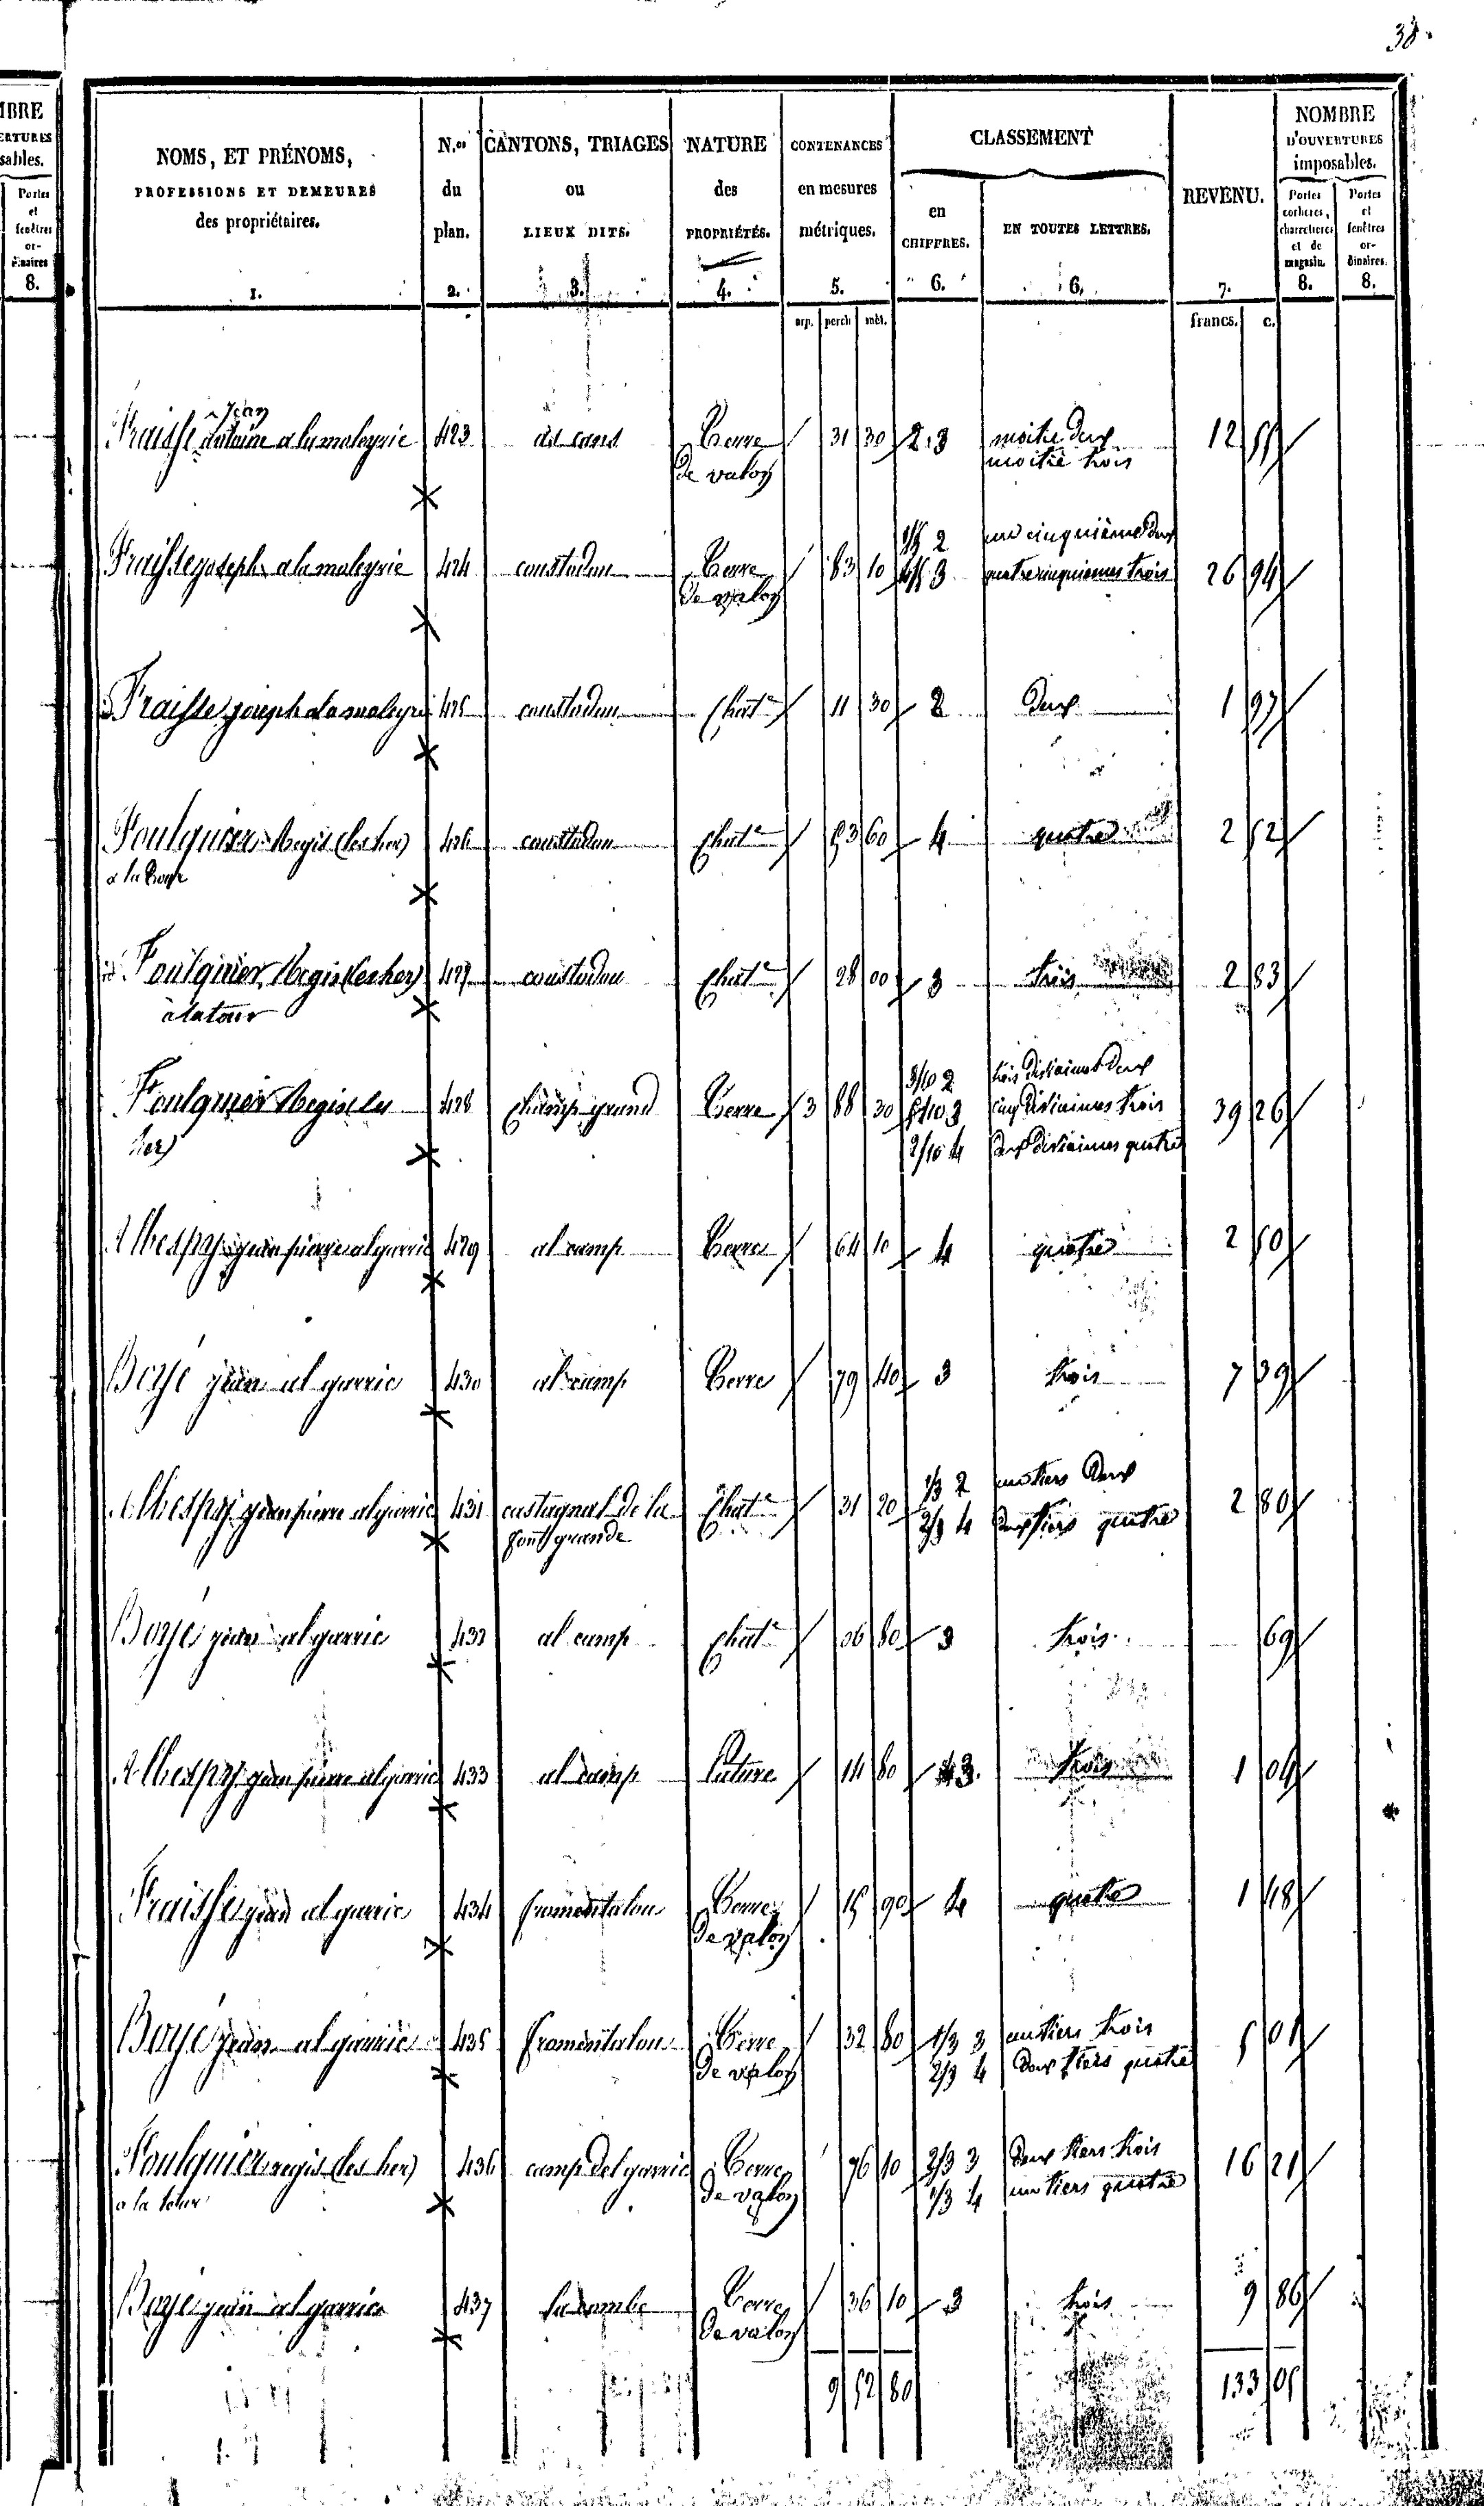 38.
NOMS, ET PRÉNOMS, PROFESSIONS ET DEMEURES des propriétaires. 1.
N.os du plan. 2.
CANTONS, TRIAGES ou LIEUX DITS. 3.
NATURE des PROPRIÉTÉS. 4.
CONTENANCES en mesures métriques. 5.
CLASSEMENT
en CHIFFRES. 6.
EN TOUTES LETTRES. 6.
REVENU. 7.
NOMBRE D'OUVERTURES imposables.
Portes cochères, charretières et de magasin. 8.
Portes et fenêtres ordinaires. 8.
arp. perch. mèt. francs. c.
Jean
Fraisse antoine a la maleyrie 423 Terre 31 30 2.3 moitié deux 12 55
de valon moitié trois
1/5 2 un cinquième deux
Fraisse joseph a la maleyrie 424 constadou Terre 83 10 4/5 3 quatre cinquiemes trois 26 94
de valon
Fraisse joseph a la maleyrie 425 constadou Chat.e 11 30 2 deux 1 97
Foulquier Regis (les her) 426 constadou Chat.e 53 60 4 quatre 2 52
a la tour
id Foulquier Regis (les her) 427 constadou Chat.e 28 00 3 trois 2 83
à la tour
3/10 2 trois dixiaimes deux
Foulquier Regis les 428 champ grand Terre 3 88 30 5/10 3 cinq dixiaimes trois 39 26
her) 2/10 4 deux dixiaimes quatre
Albespy jean pierre al garric 429 al camp Terre 64 10 4 quatre 2 50
Boyé jean al garric 430 al camp Terre 79 40 3 trois 7 39
1/3 2 un tiers deux
Albespy jean pierre al garric 431 castagnal de la Chat.e 31 20 2/3 4 deux tiers quatre 2 80
font grande
Boyé jean al garric 432 al camp Chat.e 06 80 3 trois 69
Albespy jean pierre al garric 433 al camp Pature 14 80 3. trois 1 04
Fraisse jean al garric 434 fromentalou Terre 15 90 4 quatre 1 48
de valon
Boyé jean al garric 435 fromentalou Terre 32 80 1/3 3 un tiers trois 5 01
de valon 2/3 4 deux tiers quatre
Foulquier regis (les her) 436 camp del garric Terre 76 10 2/3 3 deux tiers trois 16 21
a la tour de valon 1/3 4 un tiers quatre
Boyé jean al garric 437 la combe Terre 36 10 3 trois 9 86
de valon
9 52 80 133 05